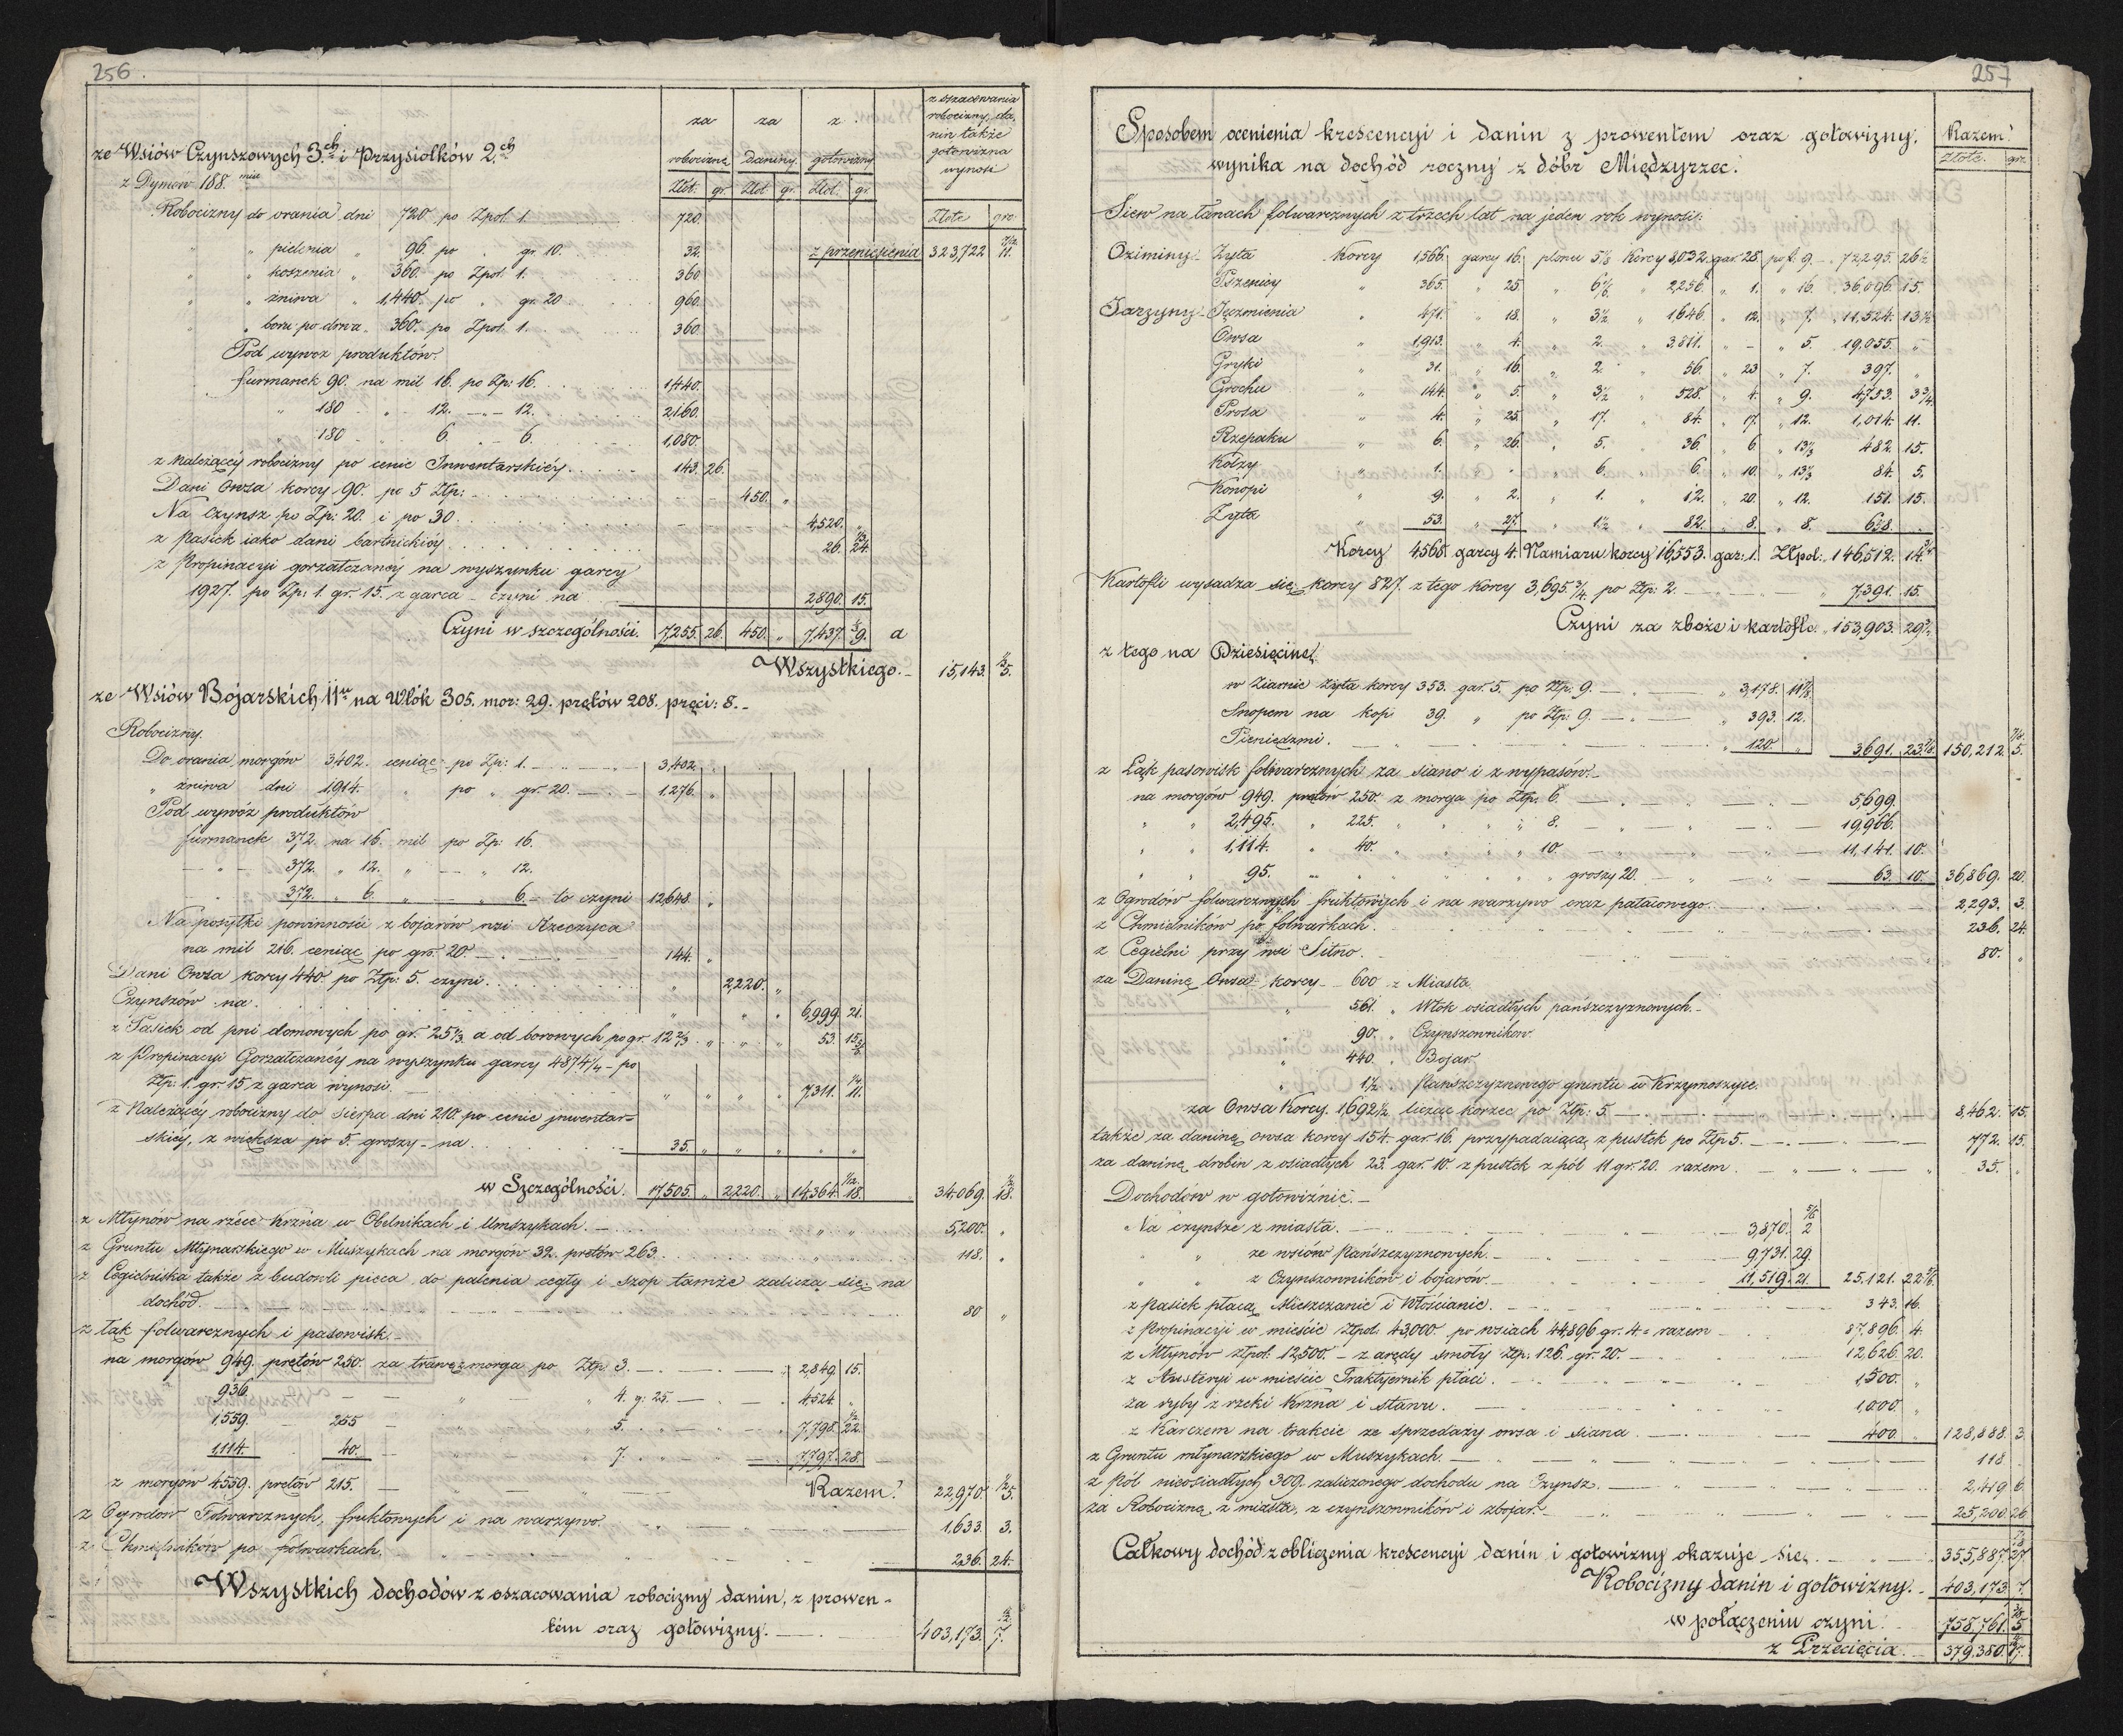 256.
za za z z oszacowania robocizny, danin także gotowizna wynosi
robociznę daniny gotowizny
Złot. gr. Złot gr. Złot. gr. Złote gro.
ze Wsiów Czynszowych 3.ch i Przysiolków 2.ch
z Dymów 188.
Robocizny do orania dni 720 po Zpol. 1. 720
z przeniesienia 323,722 11.
" " pielenia " 96. po " gr. 10. 32.
" " koszenia " 360. po Zpol. 1. 360
" " żniwa " 1,440. po " gr. 20 960.
" " boru po drwa " 360. po Zpol. 1. 360
Pod wywoz produktów.
furmanek 90. na mil 16. po Zp: 16. 1,440.
" 180 - " - 12. - " - 12. 2,160.
" 180 - " 6. " - 6. 1,080.
z należącéy robocizny po cenie Inwentarskiéy. 143. 26.
Dani Owsa korcy 90. po 5 Złp: 450. "
Na Czynsz po Zp: 20. i po 30. 4,520. "
z pasiek iako dani bartnickiéy 26. 24.
z Propinacyi gorzałczaney na wyszynku garcy
1927. po Zp: 1. gr. 15. z garca - czyni na 2,890. 15.
Czyni w szczególności. 7,255. 26. 450. " 7,437. 9. a
Wszystkiego. - 15,143. 5.
ze Wsiów Bojarskich 11tu na Włók 305. mor: 29. prętów 208. pręci: 8. -
Robocizny.
Do orania morgów 3402. ceniąc po Zp: 1. 3,402.
" żniwa dni 1,914. " po " gr. 20. 1,276. "
Pod wywóz produktów
furmanek 372. na 16. mil po Zp: 16.
- " - 372. " 12. " - " 12.
372. " 6. " - " 6. - to czyni 12,648. "
Na posyłki powinności z bojarów wsi Rzeczyca
na mil 216. ceniąc po gro. 20. 144. "
Dani Owsa korcy 440. po Złp: 5. czyni. " 2,220. "
Czynszów na. " " " 6,999 21.
z Pasiek od pni domowych po gr. 25 1/3 a od borowych po gr. 12 2/3 " " " 53. 15
z Propinacyi Gorzałczanéy na wyszynku garcy 4874 1/4 - po
Złp: 1. gr. 15 z garca wynosi. " " " " 7,311. 11.
z Należącéy robocizny do sierpa dni 210. po cenie jnwentar-
skiéy, z większa po 5. groszy - na. 35. " " " " "
w Szczególności. 17,505. " 2,220. " 14,364. 18. 34,069. 18.
z Młynów na rzéce Krzna w Obelnikach i Umszykach. 5,200. "
z Gruntu Młynarskiego w Muszykach na morgów 32. prętów 263. 118. "
z Cegielniska także z budowli pieca do palenia cegły i szop tamże zalicza się na
dochód. 80 "
z łąk folwarcznych i pasowisk. -
na morgów 949. prętów 250. za trawę z morga po Złp: 3. 2,849. 15.
936. " 4. g: 25. 4,524. "
1,559. 255 " 5. 7,798. 22
1,114. 40. " 7. 7,797. 28.
z morgów 4559. prętów 215. Razem. 22,970. 5.
z Ogrodow Folwarcznych, fruktowych i na warzywo. 1,633. 3.
z Chmielników po folwarkach. 236. 24.
Wszystkich dochodów z oszacowania robocizny danin, z prowen-
tem oraz gotowizny. 403,173. 7.
257
Sposobem ocenienia krescencyi i danin z prowentem oraz gotowizny,
wynika na dochód roczny z dóbr Międzyrzec.
Razem
Złote. gr.
Siew na łanach folwarcznych z trzech lat na jeden rok wynosi:
Oziminy. Żyta Korcy 1,566. garcy 16. plonu 5 1/8 Korcy 8,032. gar. 28. po f. 9. 72,295. 26 1/2
Pszenicy " 365. " 25 " 6 1/6 " 2,256. " 1. " 16. 36,096. 15.
Jarzyny. Jęczmienia " 471. " 18. " 3 1/2 " 1,646. " 12. " 7. 11,524. 13 1/2
Owsa " 1,913. " 4. " 2. " 3,811. " - " 5. 19,055. "
Gryki " 31. " 16. " 2 " 56. " 23 " 7. 397. "
Grochu " 144. " 5. " 3 1/2 " 528. " 4. " 9. 4,753. 3 3/4
Prosa " 4. " 25. " 17. " 84. " 17. " 12. 1,014. 11.
Rzepaku " 6. " 26. " 5. " 36. " 6. " 13 1/3 482. 15.
Kolzy " 1. " - " 6. " 6. " 10. " 13 1/3 84. 5.
Konopi " 9. " 2. " 1. " 12. " 20. " 12. 151. 15.
Żyta " 53. " 27. " 1 1/2 " 82. " 8. " 8. 658. "
Korcy 4568. garcy 4. Namiaru korcy 16,553. gar: 1. Złpol: 146,512. 14 3/4
Kartofli wysadza się korcy 827. z tego Korcy 3,695 3/4. po Złp: 2. 7,391. 15.
Czyni za zboże i kartofle. 153,903. 29 3/4
z tego na Dziesięcinę
w Ziarnie żyta korcy 353. gar. 5. po Złp: 9. 3,178. 11 7/8
Snopem na kopi 39. " po Złp: 9. 393. 12.
Pieniędzmi. 120 " 3691. 23 7/8 150,212. 5.
z Łąk pasowisk folwarcznych za siano i z wypasów. -
na morgów 949. prętów 250. z morga po Złp. 6. 5,699.
" " 2,495. " 225. " " " " 8. 19,966.
" " 1,114. " 40. " " " " 10. 11,141. 10.
" " 95. " " " " " groszy 20. 63. 10. 36,869. 20.
z Ogrodów folwarcznych fruktowych i na warzywo oraz pałacowego. 2,293. 3.
z Chmielników po folwarkach. 236. 24.
z Cegielni przy wsi Sitno. 80. "
za Daninę Owsa korcy - 600 z Miasta.
" 561. " Włok osiadłych pańszczyznowych. -
" 90. " Czynszowników
" 440. " Bojar
" 1 1/2 " Pańszczyznowego gruntu w Krzymoszyce.
za Owsa Korcy. 1,692 1/2 licząc korzec po Złp: 5. 8,462. 15.
także za daninę owsa korcy 154. gar 16. przypadaiącą z pustek po Złp 5. 772. 15.
za daninę drobin z osiadłych 23. gar. 10. z pustek z pół 11 gr. 20. razem. 35. "
Dochodów w gotowiźnie. -
Na czynsze z miasta. 3,870. 2
" " ze wsiów Pańszczyznowych. - 9,731. 29.
" " z Czynszonników i bojarów. 11,519. 21. 25,121. 22 5/6
z pasiek płacą Mieszczanie i Włościanie. 343. 16.
z Propinacyi w mieście Złpol: 43,000. po wsiach 44,896 gr. 4. = razem 87,896. 4
z Młynów złpol: 12,500. - z arędy smoły Złp: 126. gr. 20. 12,626. 20.
z Austeryi w mieście Traktyernik płaci. 1,500. "
za ryby z rzeki Krzna i stawu. 1,000 "
z Karczem na trakcie ze sprzedaży owsa i siana 400. " 128,888. 3
z Gruntu młynarskiego w Muszykach. 118.
z Pół nieosiadłych 309. zaliczonego dochodu na Czynsz. 2,419. 6.
za Robociznę z miasta, z czynszowników i z bojar. 25,200. 26
Całkowy dochód z obliczenia krescencyi danin i gotowizny okazuje się. 355,887. 27
Robocizny danin i gotowizny. 403,173. 7.
w połączeniu czyni. 758,761. 5
z Przecięcia. 379,380. 17.